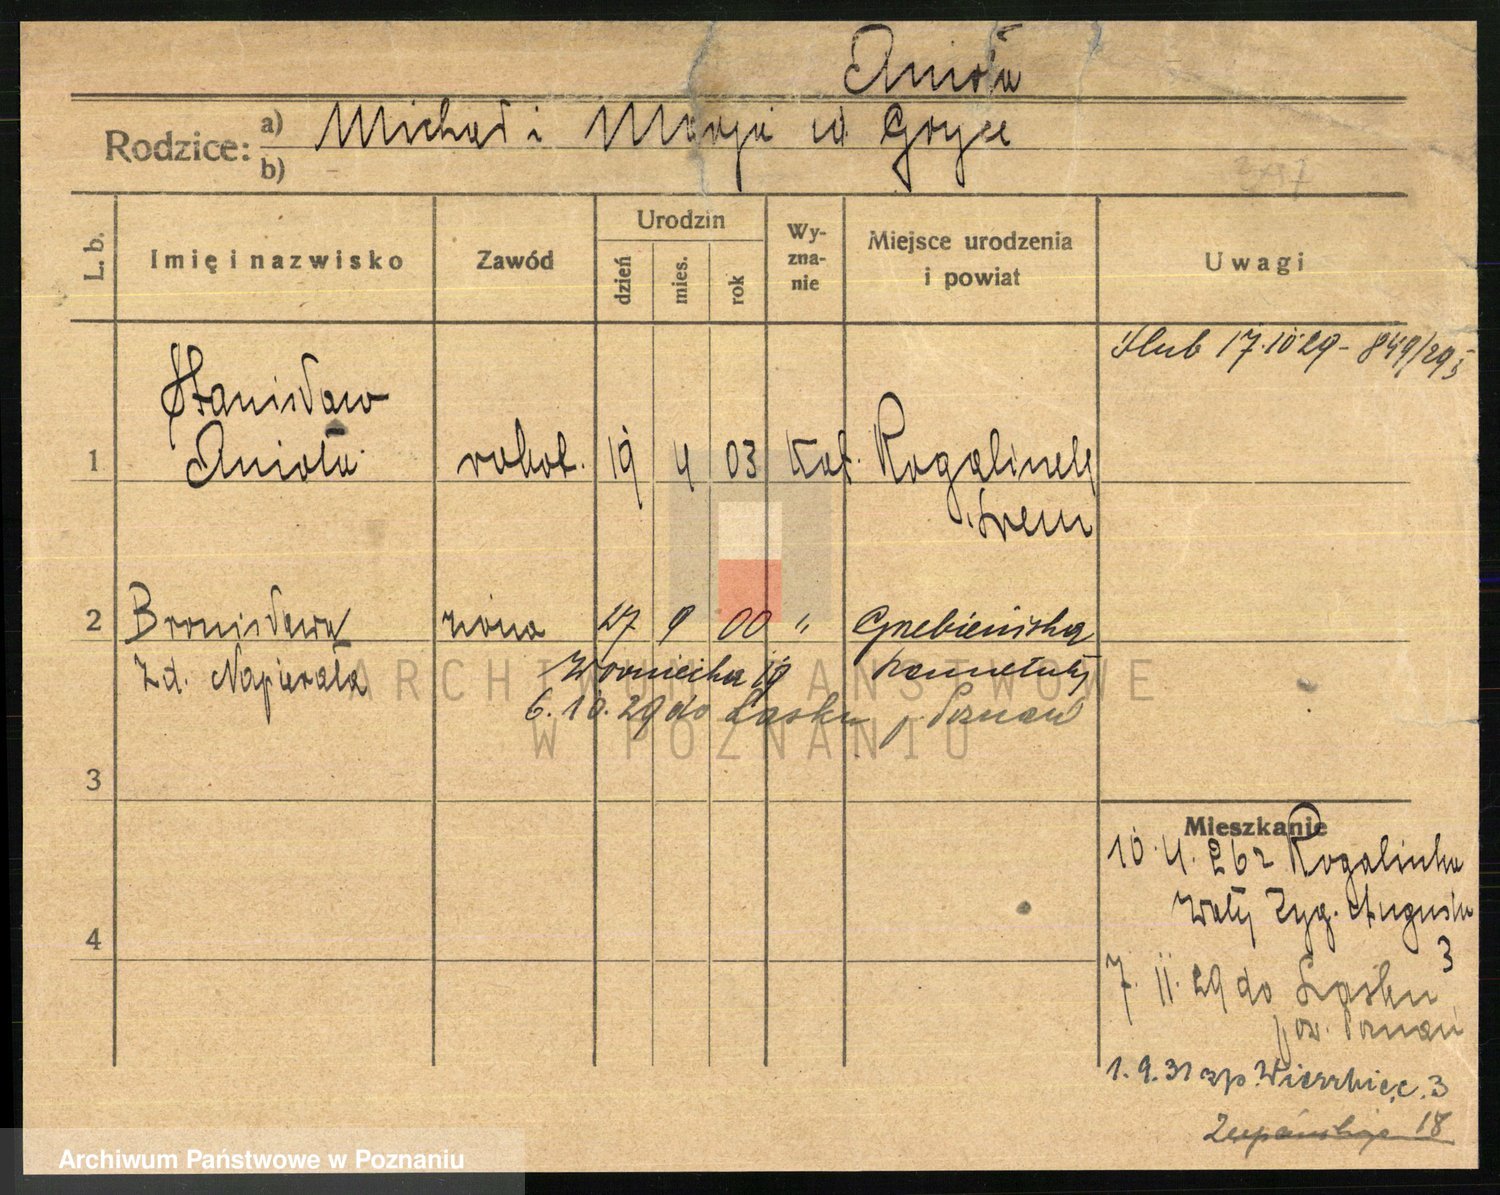 Anioła
Rodzice: a) Michał i Marja zd Gryce
b)
L. b. Imię i nazwisko Zawód Urodzin dzień mies. rok Wyzna-nie Miejsce urodzenia i powiat Uwagi
Ślub 17.10 29 - 849/29
Stanisław
1 Anioła robot. 19 4 03 Kat. Rogalinek
Śrem
2 Bronisława żona 27 9 00 " Grzebienisko
zd. Napierała Woźniecka 19 Szamotuły
6.10.29 do Lasku p. Poznań
3
Mieszkanie
10.4.26 z Rogalinka
Wały Zyg. Augusta
4
3
7.11.29 do Lasku
pow. Poznań
1.9.31 Wierzbięc. 3
Żupańskiego 18
ARCHIWUM PAŃSTWOWE
W POZNANIU
Archiwum Państwowe w Poznaniu